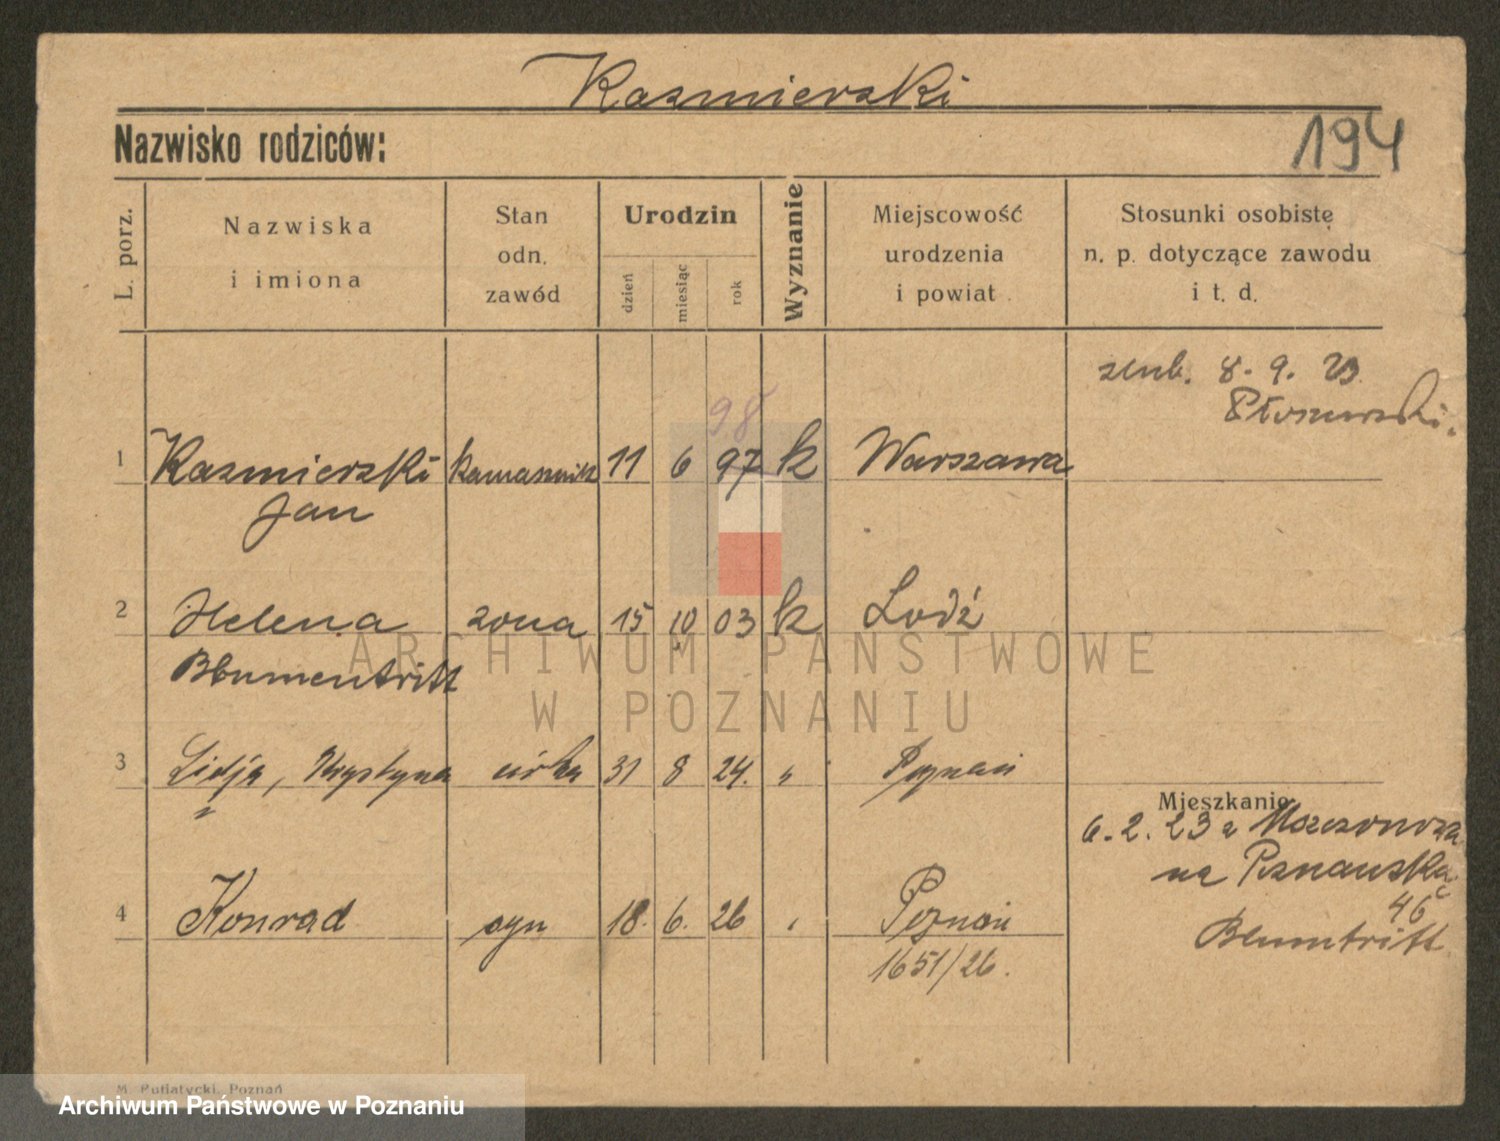 Kazmierski
Nazwisko rodziców:
194
L. porz.
Nazwiska
i imiona
Stan
odn.
zawód
Urodzin
dzień
miesiąc
rok
Wyznanie
Miejscowość
urodzenia
i powiat
Stosunki osobistę
n. p. dotyczące zawodu
i t. d.
8. 9. 23
98
1 Kazmierski kamasznik 11 6 97 k Warszawa
Jan
2 Helena zona 15 10 03 k Lodź
Blumentritt
ARCHIWUM PAŃSTWOWE
W POZNANIU
3 Lidja, Krystyna córka 31 8 24. " Poznań
Mieszkanie
6. 2. 23 z
na Poznańską
45
4 Konrad syn 18. 6. 26 " Poznań
Blumtritt
1651/26.
M. Putiatycki, Poznań
Archiwum Państwowe w Poznaniu